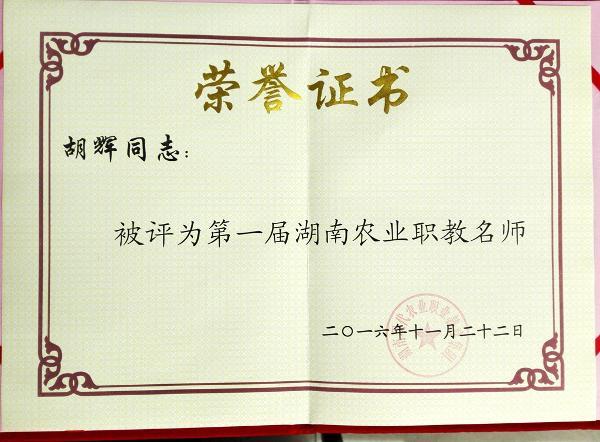 荣誉证书
胡辉同志：
被评为第一届湖南农业职教名师
二〇一六年十一月二十二日